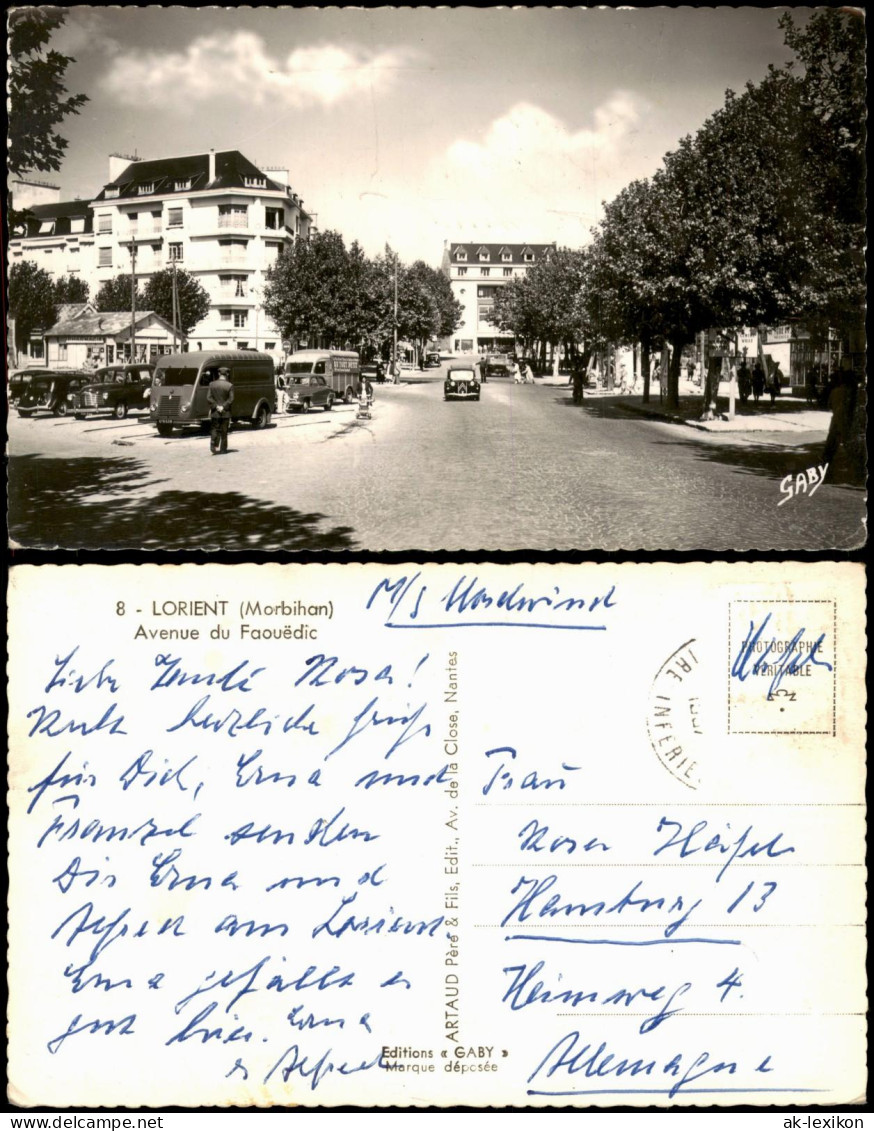 GABY
8 - LORIENT (Morbihan)
Avenue du Faouëdic
M/S Nordwind
Liebe Tante Rosa!
Recht herzliche Grüße
für Dich, Erna und
Fränzel senden
Dir Erna und
Alfred aus Lorient.
Erna gefällt es
gut hier. Erna
Alfred
ARTAUD Père & Fils, Edit., Av. de la Close, Nantes
Editions « GABY »
Marque déposée
PHOTOGRAPHIE
VÉRITABLE
IRE INFERIE
Frau
Rosa
Hamburg 13
Heimweg 4.
Allemagne
ak-lexikon